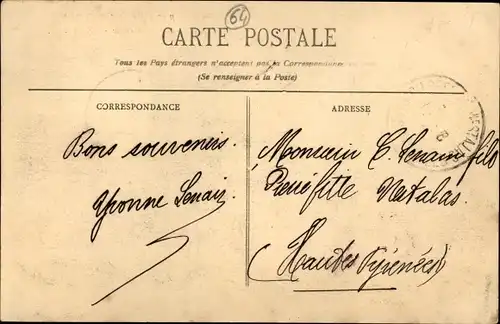 64
CARTE POSTALE
Tous les Pays étrangers n'acceptent pas la Correspondance
(Se renseigner à la Poste)
CORRESPONDANCE
ADRESSE
Bons souvenirs.
Yvonne
Monsieur fils
Pierrefitte Nestalas.
(Hautes Pyrénées)